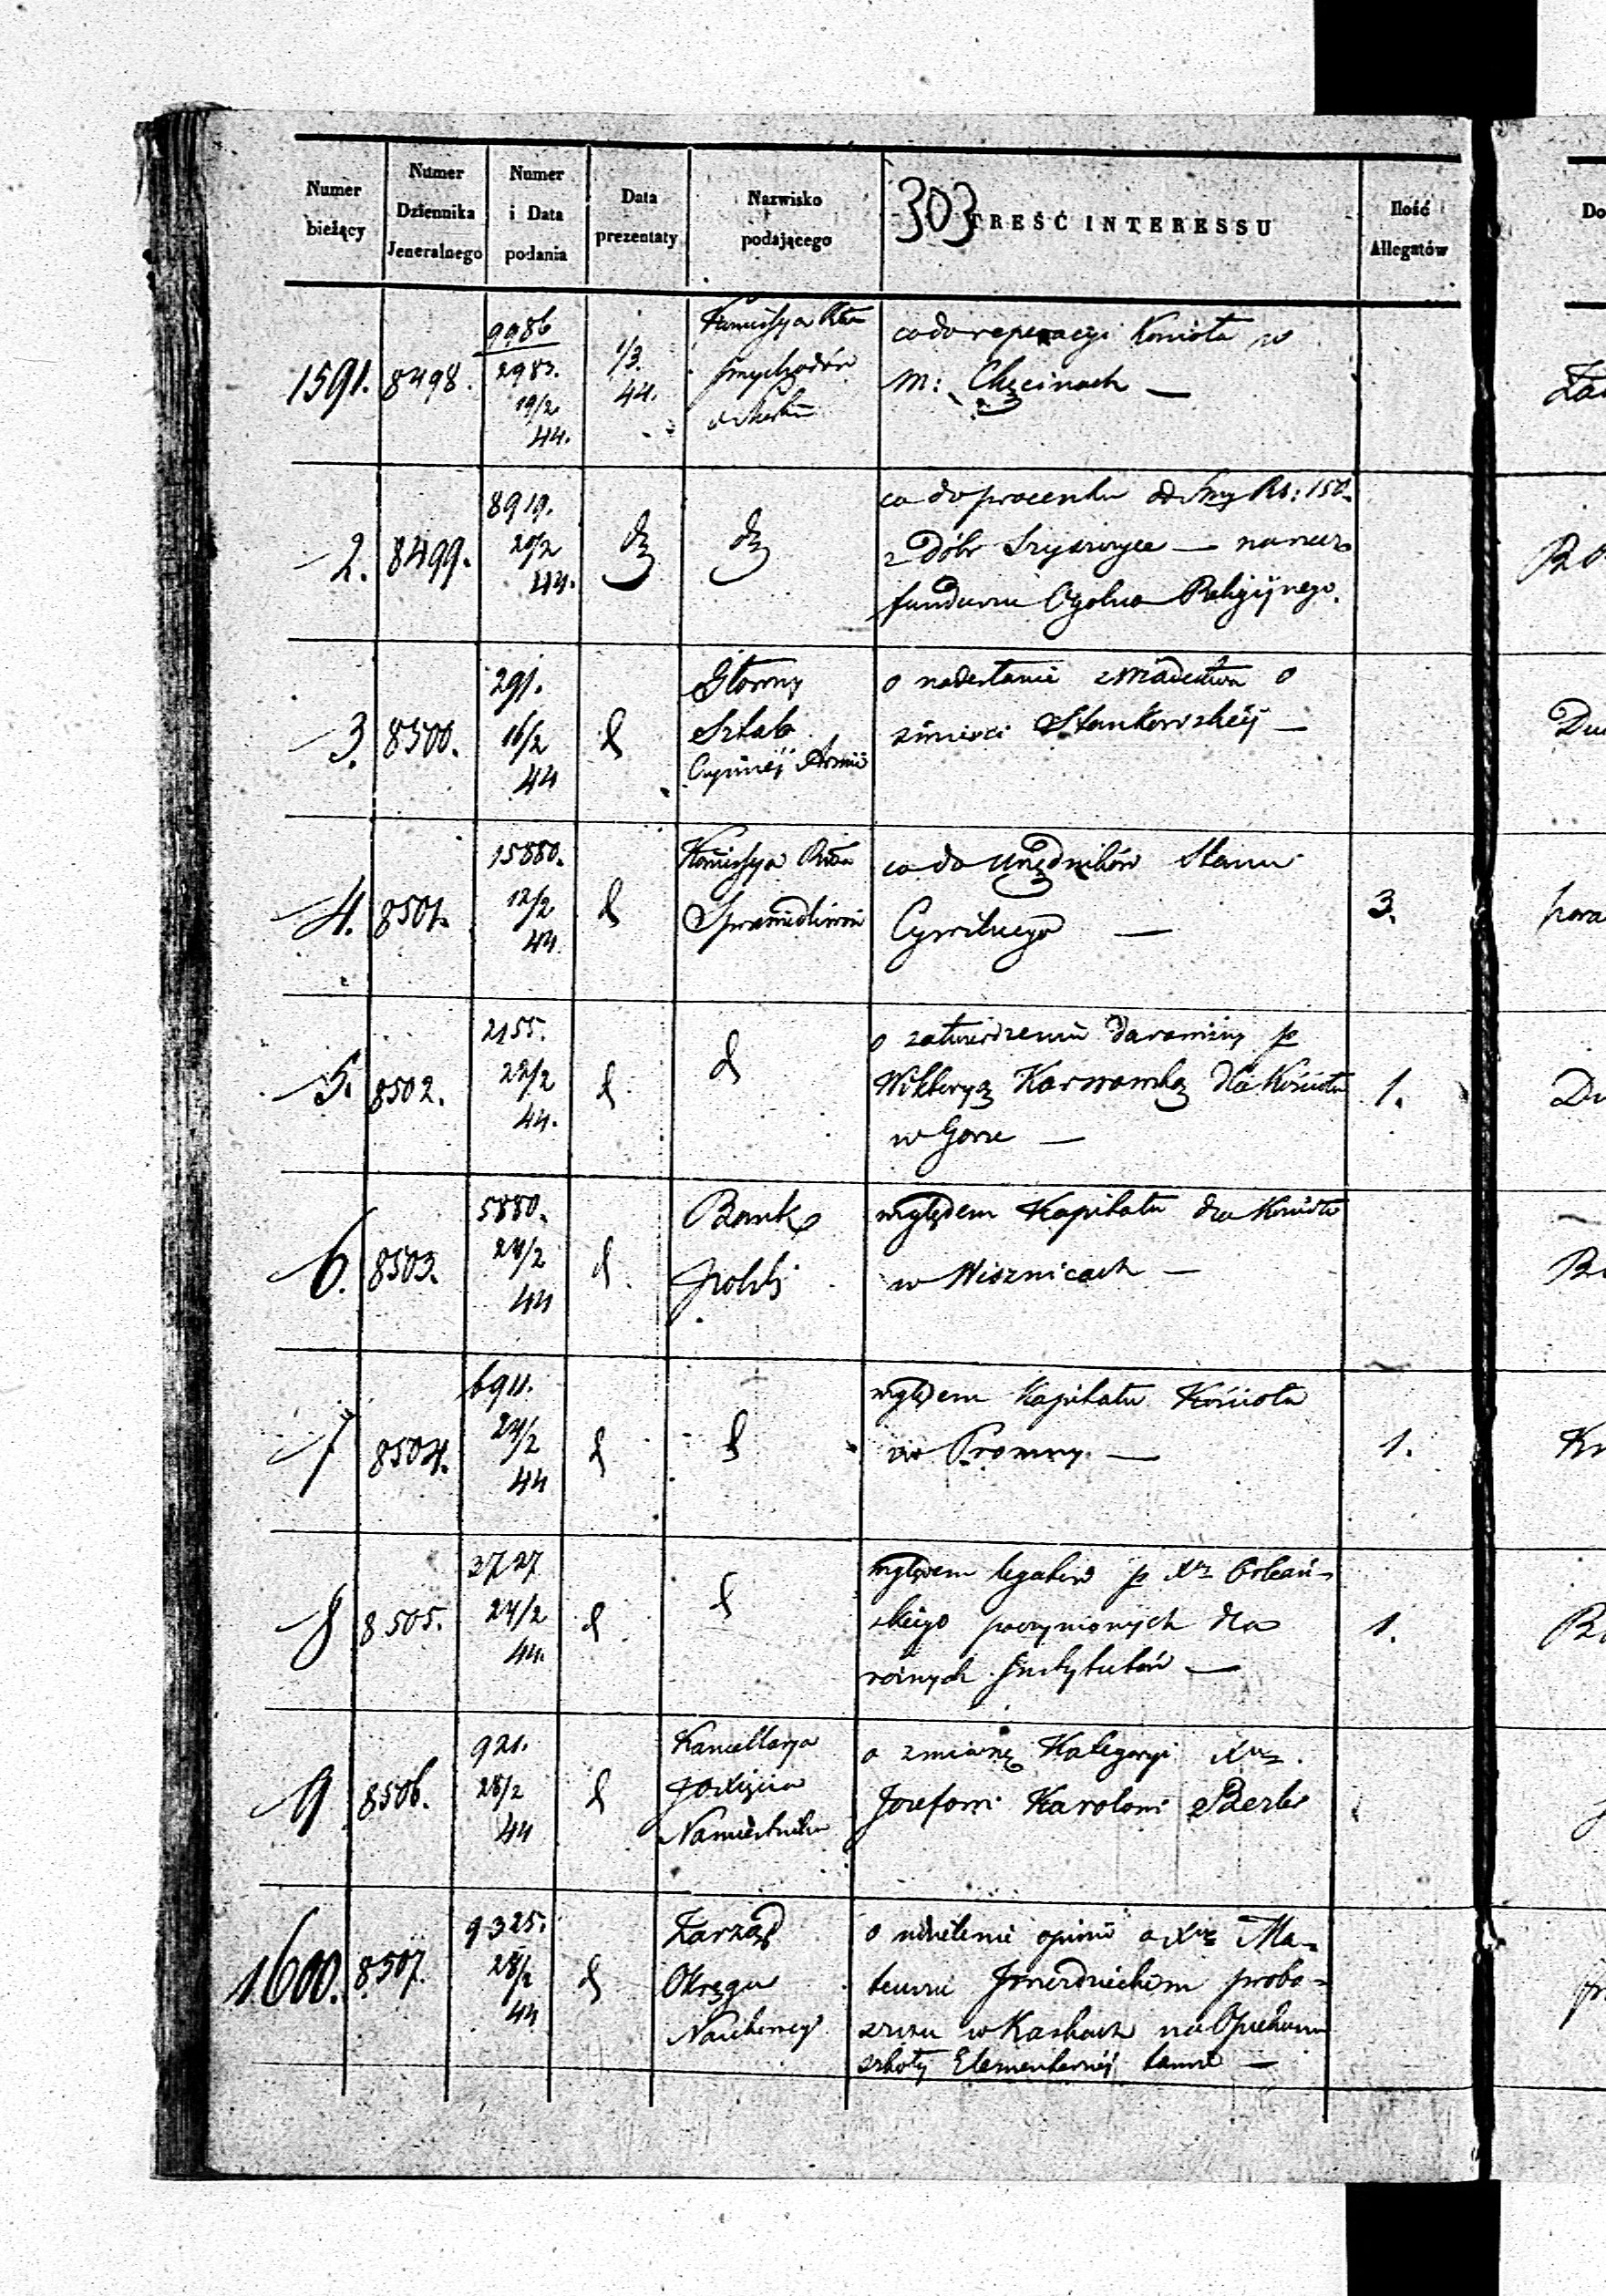 Numer bieżący
Numer Dziennika Jeneralnego
Numer i Data podania
Data prezentaty
Nazwisko podającego
303
TREŚĆ INTERESSU
Ilość Allegatów
Do
1591.
8498.
9986
2983.
19/2
44.
1/3.
44.
Kommissya Rza
Przychodów
i Skarbu
co do reperacyi Kościoła w
M: Chęcinach —
2.
8499.
8919.
20/2
44.
co do procentu od Smy Rs: 150.
z Dóbr — na rzecz
funduszu Ogolno Religijnego.
3.
8500.
291.
16/2
44
d
Głowny
Sztab
Czynnéj Armii
o nadesłanie swiadectwa o
śmierci Stankowskiéj —
4.
8501.
15880.
12/2
44.
d
Kommissya Rwa
Sprawiedliwości
co do Urzędników Stanu
Cywilnego —
3.
5.
8502.
2155.
22/2
44.
d
d
o zatwierdzenie darowizny p
Wiktoryą Karwowską dla Kościoła
w Gorze —
1.
Du
6.
8503.
5880.
24/2
44
d
Bank
Polski
względem Kapitału dla Kościoła
w Wisznicach —
7
8504.
6911.
24/2
44
d
d
względem Kapitału Kościoła
w Promny. —
1.
8
8505.
3727
24/2
44.
d
d
względem legatów p Xa Orleań-
skiego poczynionych dla
roznych Instytutów —
1.
9
8506.
921.
28/2
44
d
Kancellarya
JO Xięcia
Namiestnika
o zmianę Kategoryi Xdza
Jozefowi Karolowi
1600.
8507.
9325.
28/2
44
d
Zarząd
Okręgu
Naukowego
o udzielenie opinii o Xdzu Ma-
teuszu probo-
szczu w Kaskach na Opiekuna
szkoły Elementarnéj tamże —